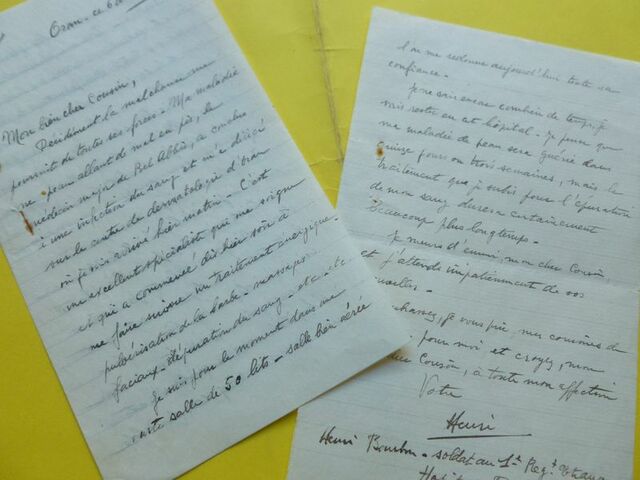 Oran - ce 6
Mon bien cher Cousin,
Décidément la malchance me
poursuit de toutes ses forces - Ma maladie
de peau allant de mal en pis, le
médecin major de Bel Abbès, a conclu
à une infection du sang et m'a dirigé
sur le centre de dermatologie d'Oran
où je suis arrivé hier matin. C'est
un excellent spécialiste qui me soigne
et qui a commencé dès hier soir à
me faire suivre un traitement énergique.
pulvérisation de la barbe - massages
faciaux - épuration du sang - etc etc
Je suis pour le moment dans une
vaste salle de 50 lits - salle bien aérée
l'on me redonne aujourd'hui toute sa
confiance -
je ne sais encore combien de temps je
vais rester en cet hôpital - Je pense que
ma maladie de peau sera guérie dans
quinze jours ou trois semaines, mais le
traitement que je subis pour l'épuration
de mon sang durera certainement
beaucoup plus longtemps -
Je meurs d'ennui, mon cher Cousin,
et j'attends impatiemment de vos
nouvelles -
je vous prie, mes cousines de
pour moi et croyez, mon
Cousin, à toute mon affection
Votre
Henri
Henri - soldat au 1er Reg.t